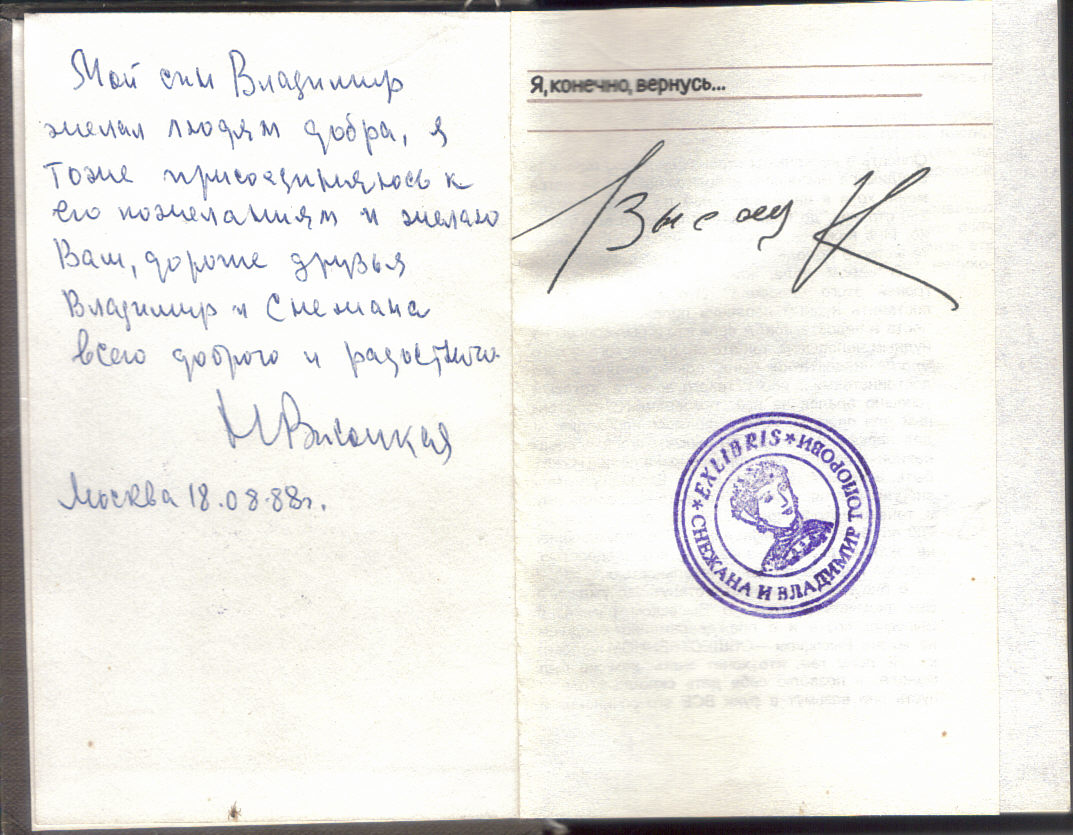 Мой сын Владимир
желал людям добра, я
тоже присоединяюсь к
его пожеланиям и желаю
Вам, дорогие друзья
Владимир и Снежана
всего доброго и радостного.
Н Высоцкая
Москва 18.08.88г.
Я, конечно, вернусь...
Высоцк
*EXLIBRIS*
СНЕЖАНА И ВЛАДИМИР ТОПОРОВИ